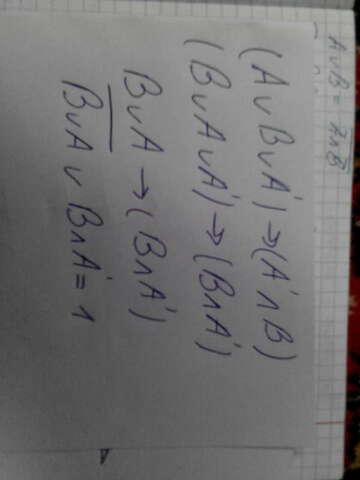 A∨B = A̅∧B̅
(A∨B∨A')→(A'∧B)
(B∨A∨A')→(B∧A')
B∨A→(B∧A')
B̅∨̅A̅ ∨ B∧A' = 1